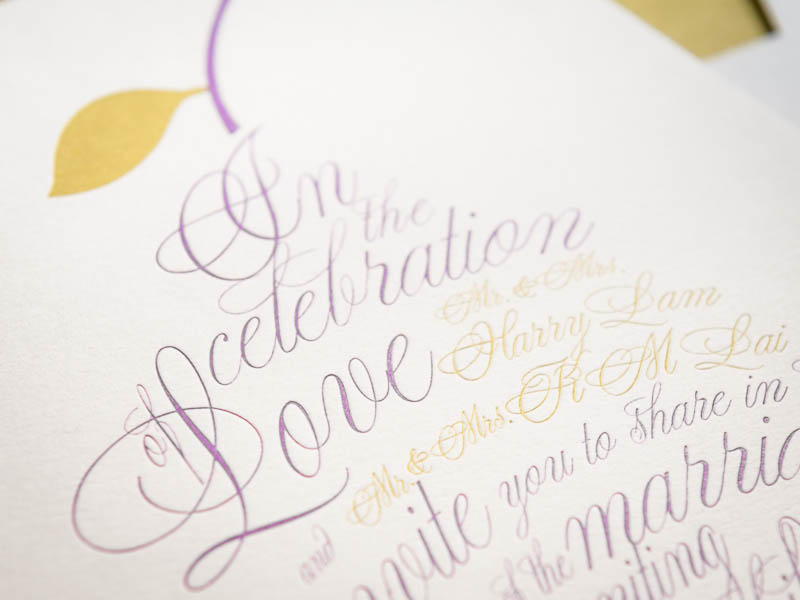 In the
celebration
of Love
Mr. & Mrs.
Harry Lam
and
Mr. & Mrs. K M Lai
you to share in
of the marria